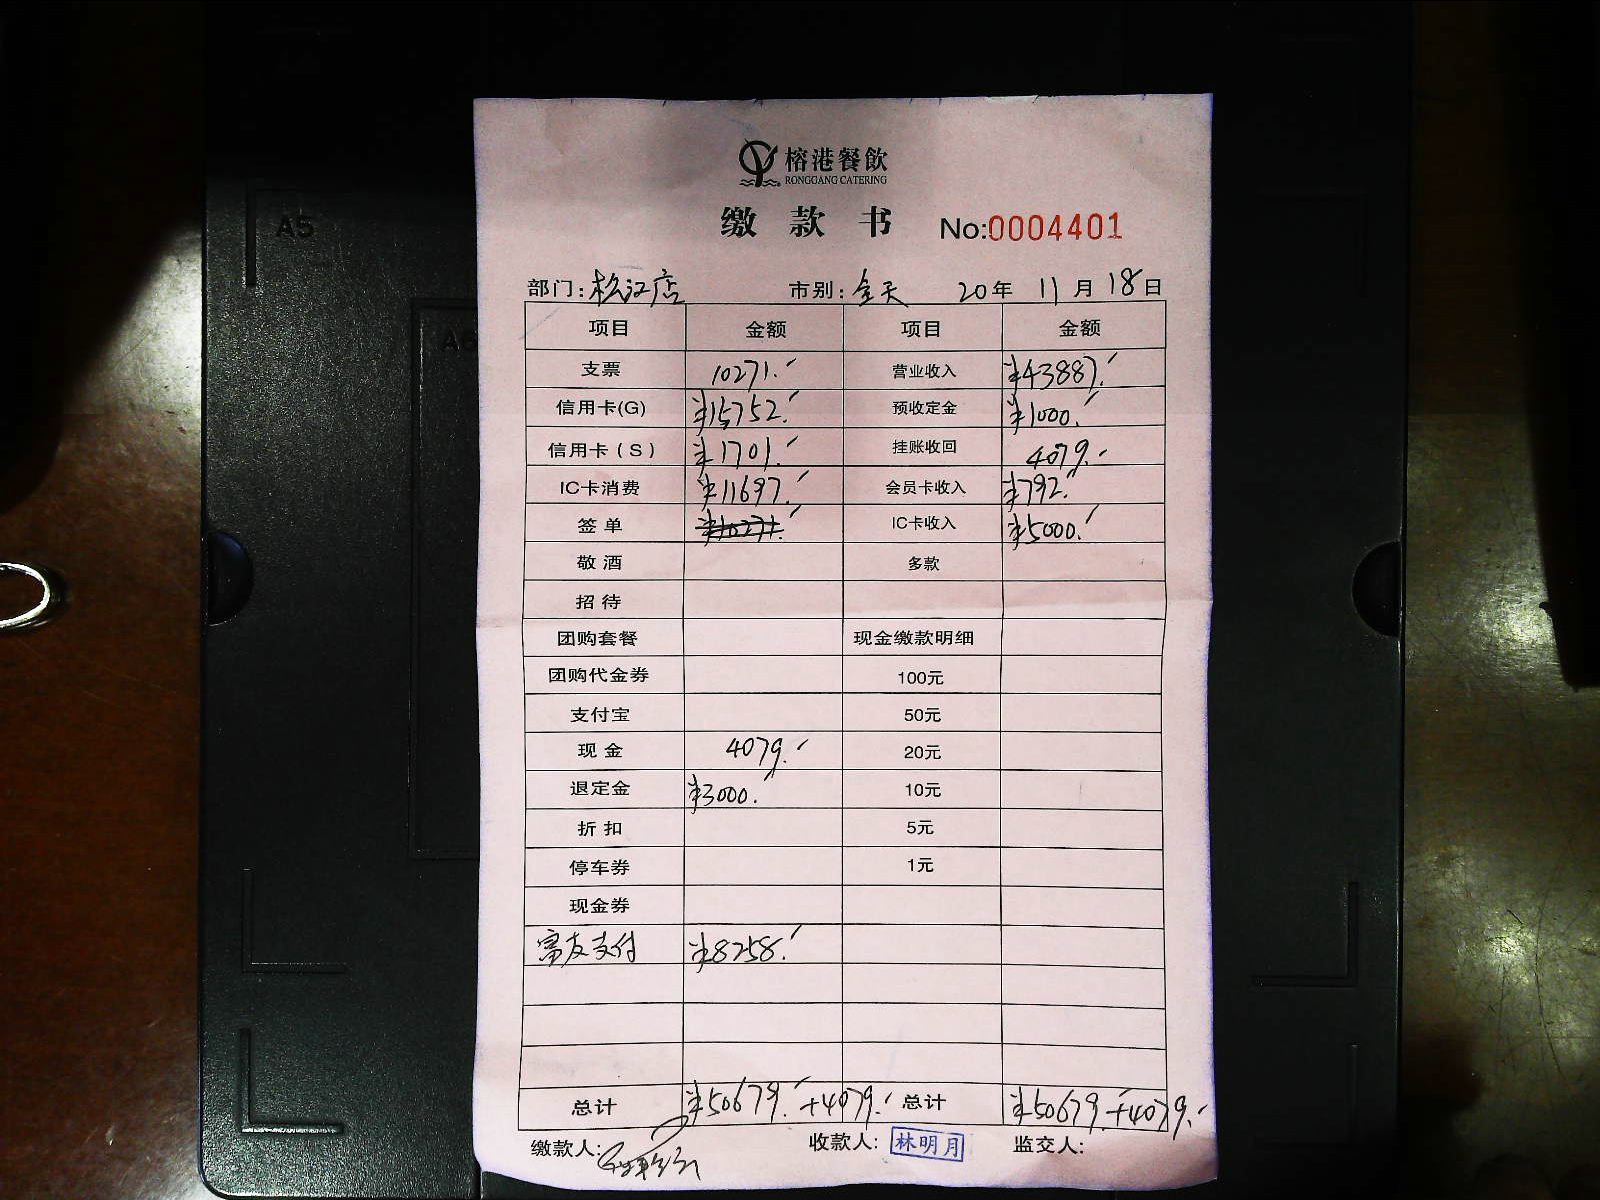 榕港餐飲
RONGGANG CATERING
缴款书 No:0004401
部门:松江店 市别:全天 20年11月18日
项目 金额 项目 金额
支票 10271.- 营业收入 ¥43887.-
信用卡(G) ¥15752.- 预收定金 ¥1000.-
信用卡(S) ¥1701.- 挂账收回 4079.-
IC卡消费 ¥11697.- 会员卡收入 ¥792.-
签单 ¥10271.- IC卡收入 ¥5000.-
敬酒 多款
招待
团购套餐 现金缴款明细
团购代金券 100元
支付宝 50元
现金 4079.- 20元
退定金 ¥3000.- 10元
折扣 5元
停车券 1元
现金券
富友支付 ¥8258.-
总计 ¥50679.-+4079.- 总计 ¥50679.-+4079.-
缴款人: 收款人:林明月 监交人:
A5
A6